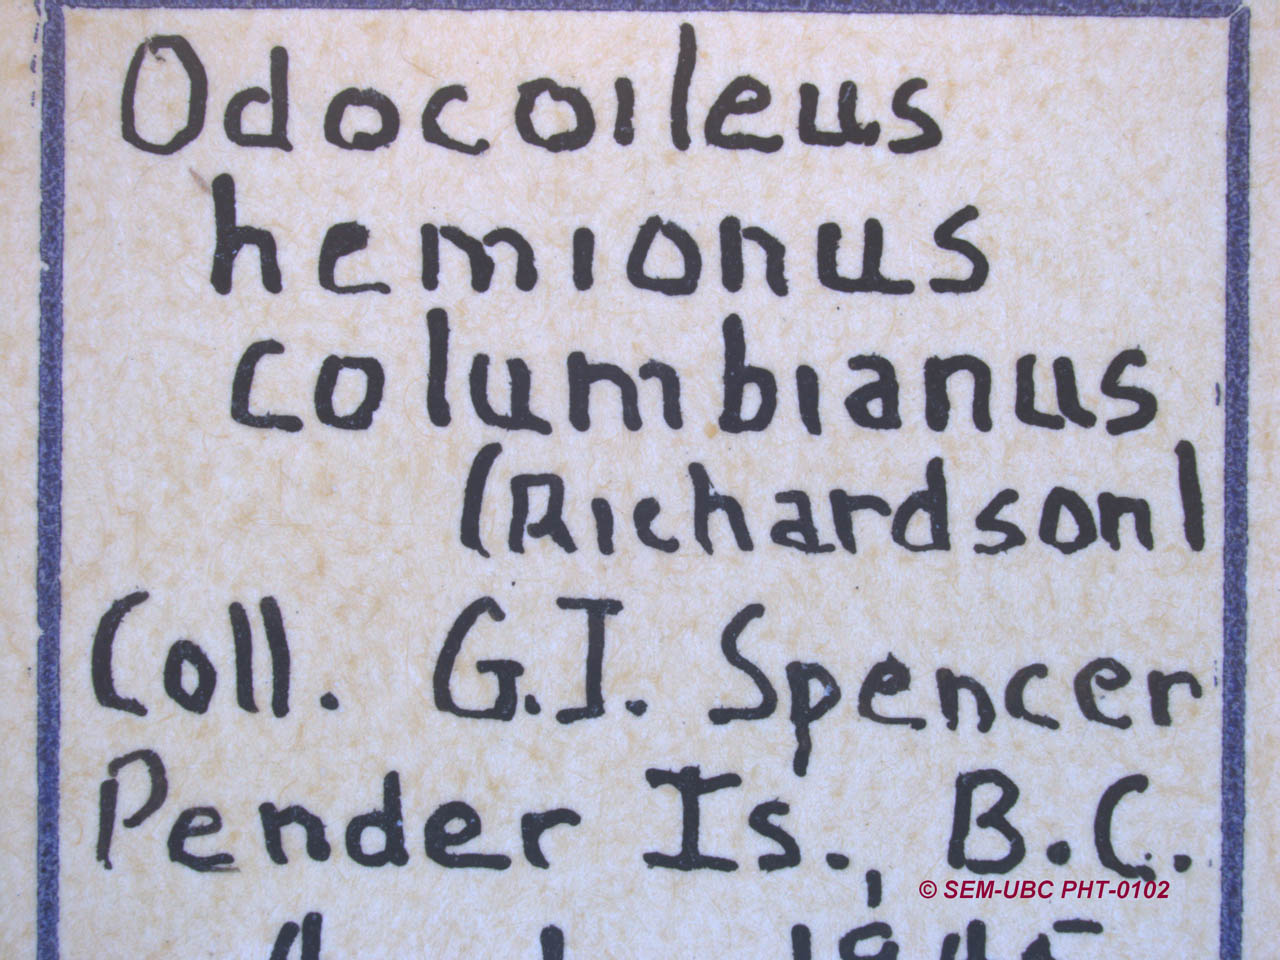 Odocoileus
hemionus
columbianus
(Richardson)
Coll. G.J. Spencer
Pender Is., B.C.
© SEM-UBC PHT-0102